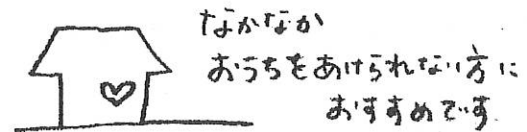 なかなか
おうちをあけられない方に
おすすめです